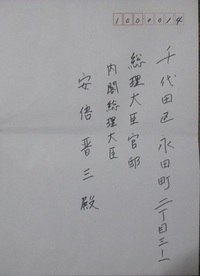 1000014
千代田区永田町二丁目三ー一
総理大臣官邸
内閣総理大臣
安倍晋三殿